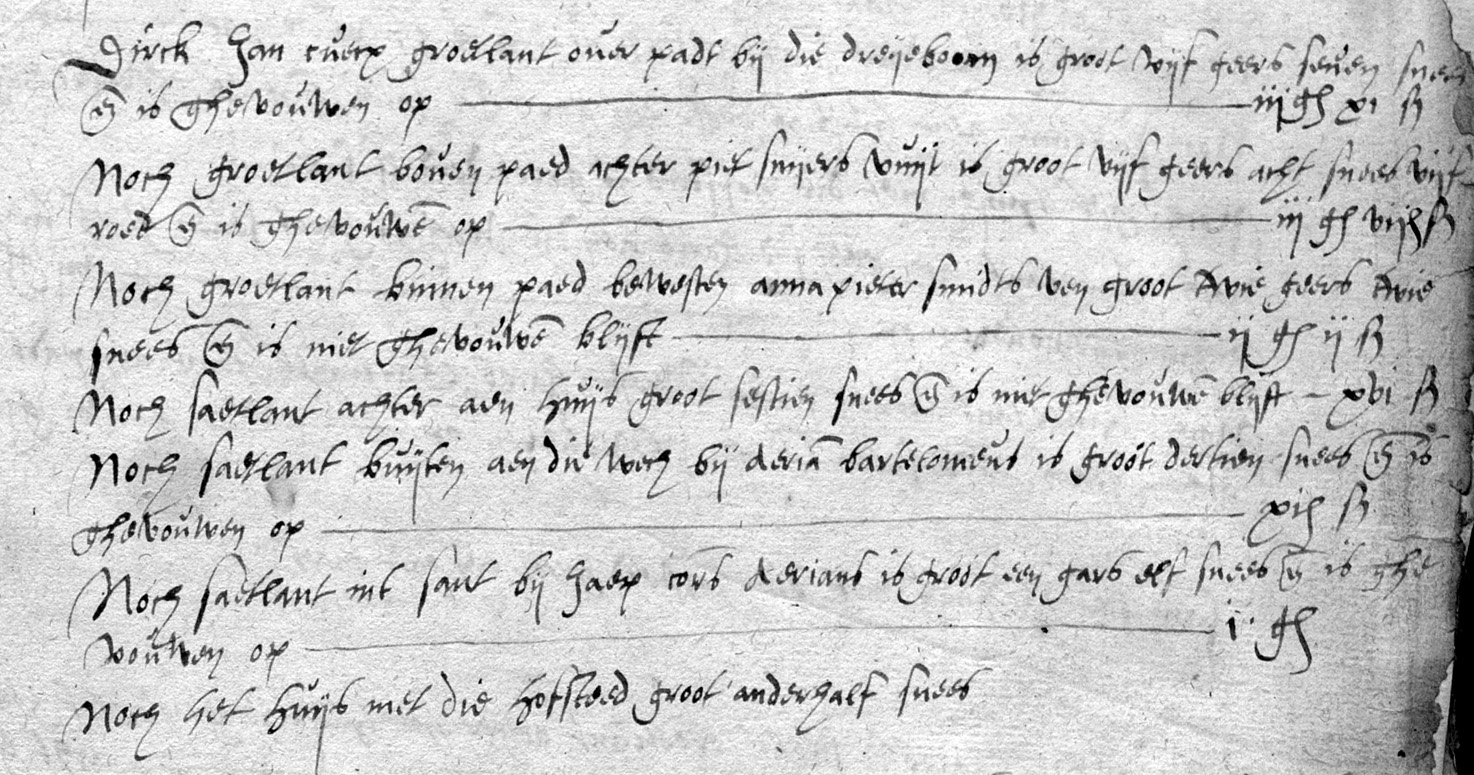 Dirck Jan cuerx groetlant over padt bij die dreijeboom is groot vijf geers seven snees
en̄ is ghevouwen op iij gh xi sn
Noch groetlant boven paed achter piet snijers vuijt is groot vijf geers acht snees vijf
roed en̄ is ghevouwē op iij gh viijh sn
Noch groetlant binnen paed bewesten anna pieter smidts ven groot twie geers twie
snees en̄ is niet ghevouwē blijft ij gh ij sn
Noch saetlant achter aen huijs groot sestien snees en̄ is niet ghevouwē blijft xvi sn
Noch saetlant buijten aen die wech bij Aeriā bartelomeus is groot dertien snees en̄ is
ghevouwen op xih sn
Noch saetlant int sant bij Jaep cors Aerians is groot een gars elf snees en̄ is ghe
vouwen op i gh
Noch het huijs met die hofsteed groot anderhalf snees